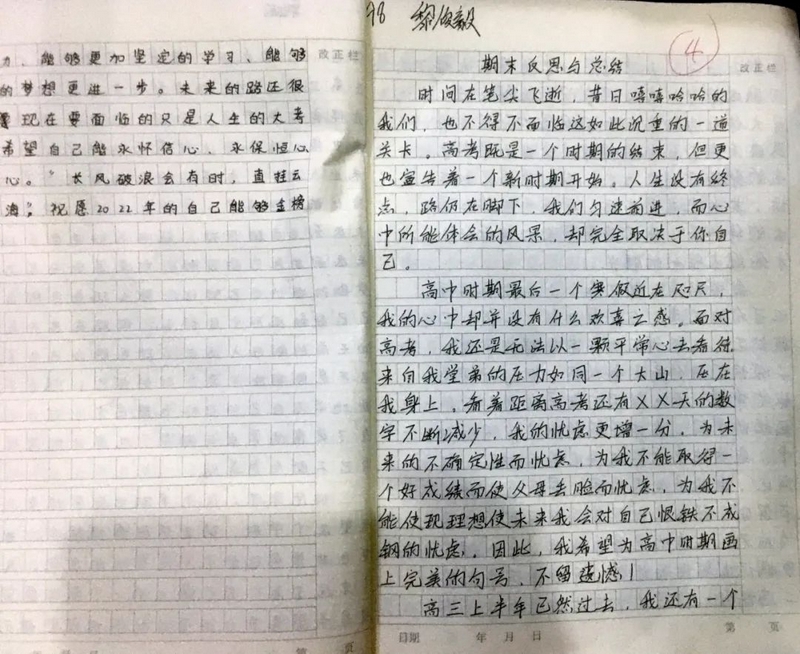 力、能够更加坚定的学习、能够
的梦想更进一步。未来的路还很
现在要面临的只是人生的大考
希望自己能永怀信心、永保恒心
心。“长风破浪会有时，直挂云
海”。祝愿2022年的自己能够金榜
改正栏
98
④
改正栏
期末反思与总结
时间在笔尖飞逝，昔日嘻嘻哈哈的
我们，也不得不面临这如此沉重的一道
关卡。高考既是一个时期的结束，但更
也宣告着一个新时期开始。人生没有终
点，路仍在脚下，我们匀速前进，而心
中所能体会的风景，却完全取决于你自
己。
高中时期最后一个寒假近在咫尺，
我的心中却并没有什么欢喜之感。面对
高考，我还是无法以一颗平常心去看待
来自我堂弟的压力如同一个大山，压在
我身上，看着距离高考还有XX天的数
字不断减少，我的忧虑更增一分，为未
来的不确定性而忧虑，为我不能取得一
个好成绩而使父母丢脸而忧虑，为我不
能使现理想使未来我会对自己恨铁不成
钢的忧虑。因此，我希望为高中时期画
上完美的句号，不留遗憾！
高三上半年已然过去，我还有一个
日期 年 月 日
第 页
年 月 日
第 页